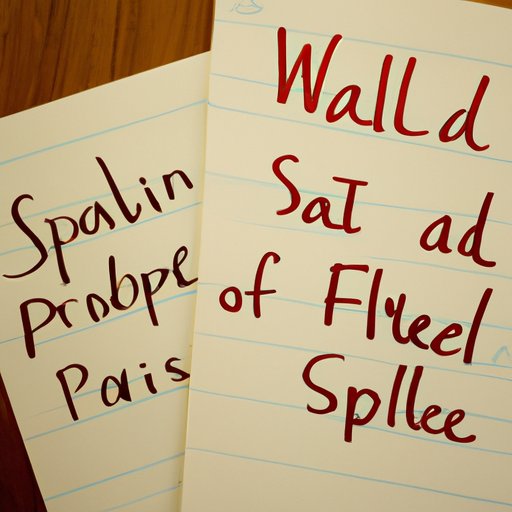 Spalin
Prnobpe
Pais
Walld
Sat ad
of Flyeel
Spllee